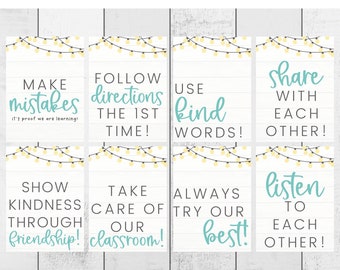 MAKE
mistakes
it's proof we are learning!
FOLLOW
directions
THE 1ST
TIME!
USE
kind
WORDS!
share
WITH
EACH
OTHER!
SHOW
KINDNESS
THROUGH
friendship!
TAKE
CARE OF
our
classroom!
ALWAYS
TRY OUR
best!
listen
TO
EACH
OTHER!